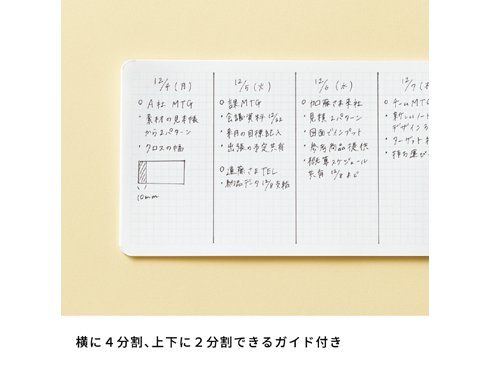 12/4 (月)
○ A社 MTG
・素材の見本帳
から2パターン
・クロスの幅
10mm
12/5 (火)
○ 課MTG
・会議資料 12/22
・来月の目標記入
・出張の予定共有
○ 遠藤さまTEL
・納品データ 12/8 支給
12/6 (水)
○ 加藤さま来社
・見積 2パターン
・図面でインプット
・参考商品提供
・概算スケジュール
共有 12/8まで
12/7 (木
○ チームMTG
・新しいノート
デザイン
・ターゲット
・持ち運び
横に4分割、上下に2分割できるガイド付き